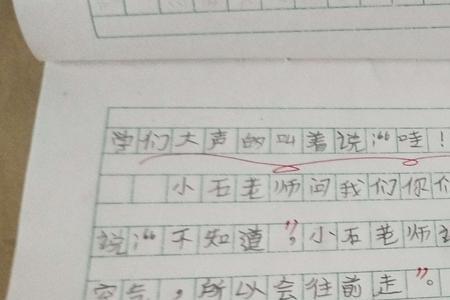 学们大声的叫着说：“哇！
小石老师问我们你
说：“不知道”，小石老师
空气，所以会往前走”。